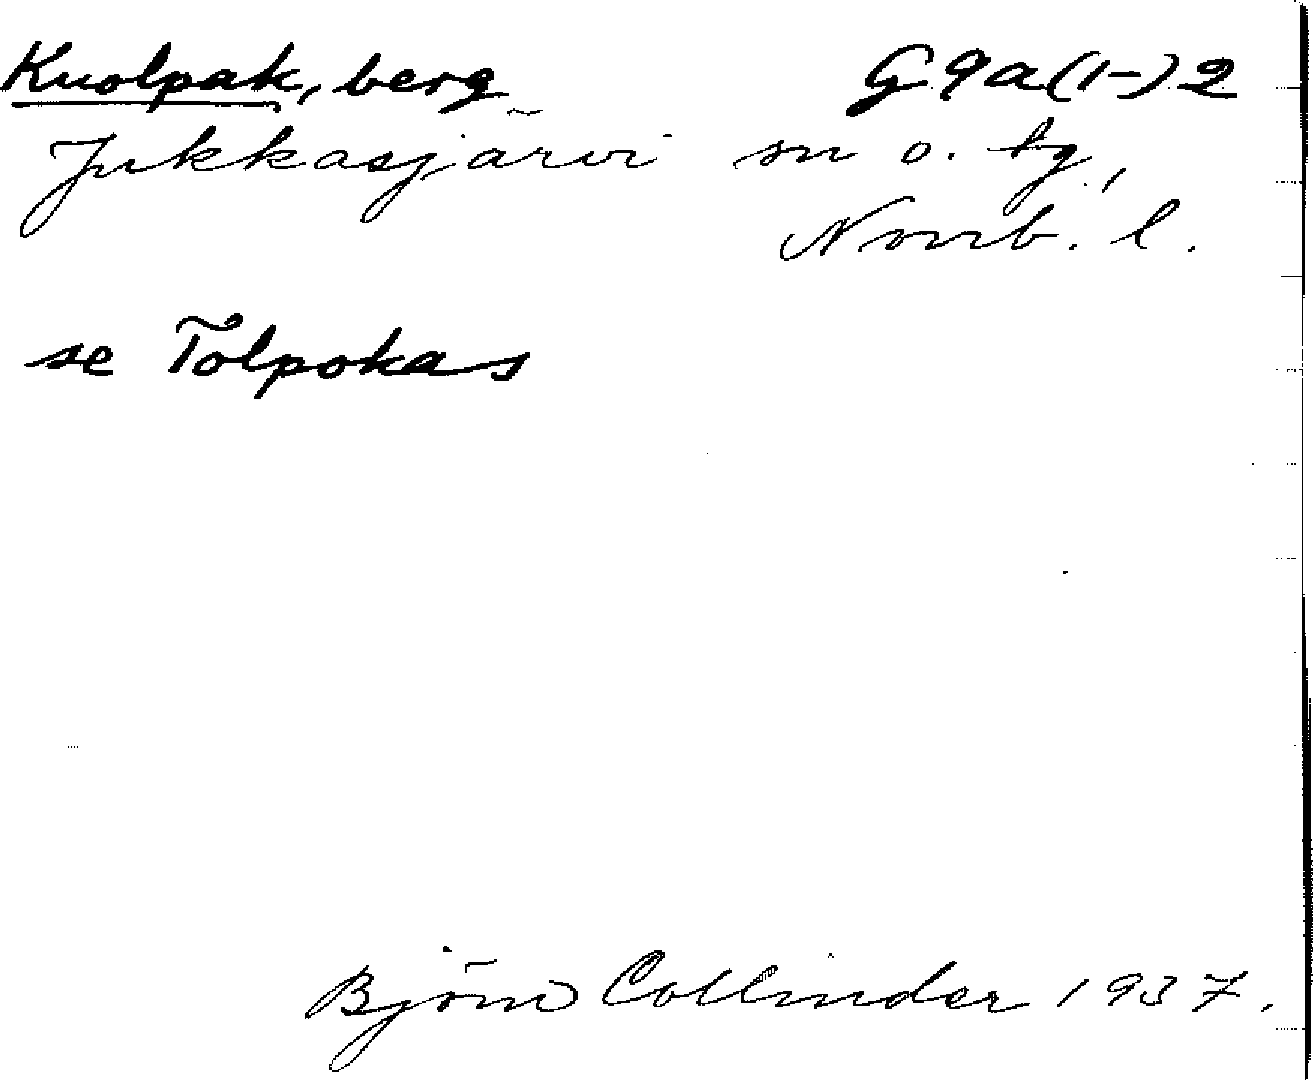 Kuolpak, berg G9a(1-)2
Jukkasjärvi sn o. tg,
Norrb. l.
se Tolpokas
Björn Collinder 1937.